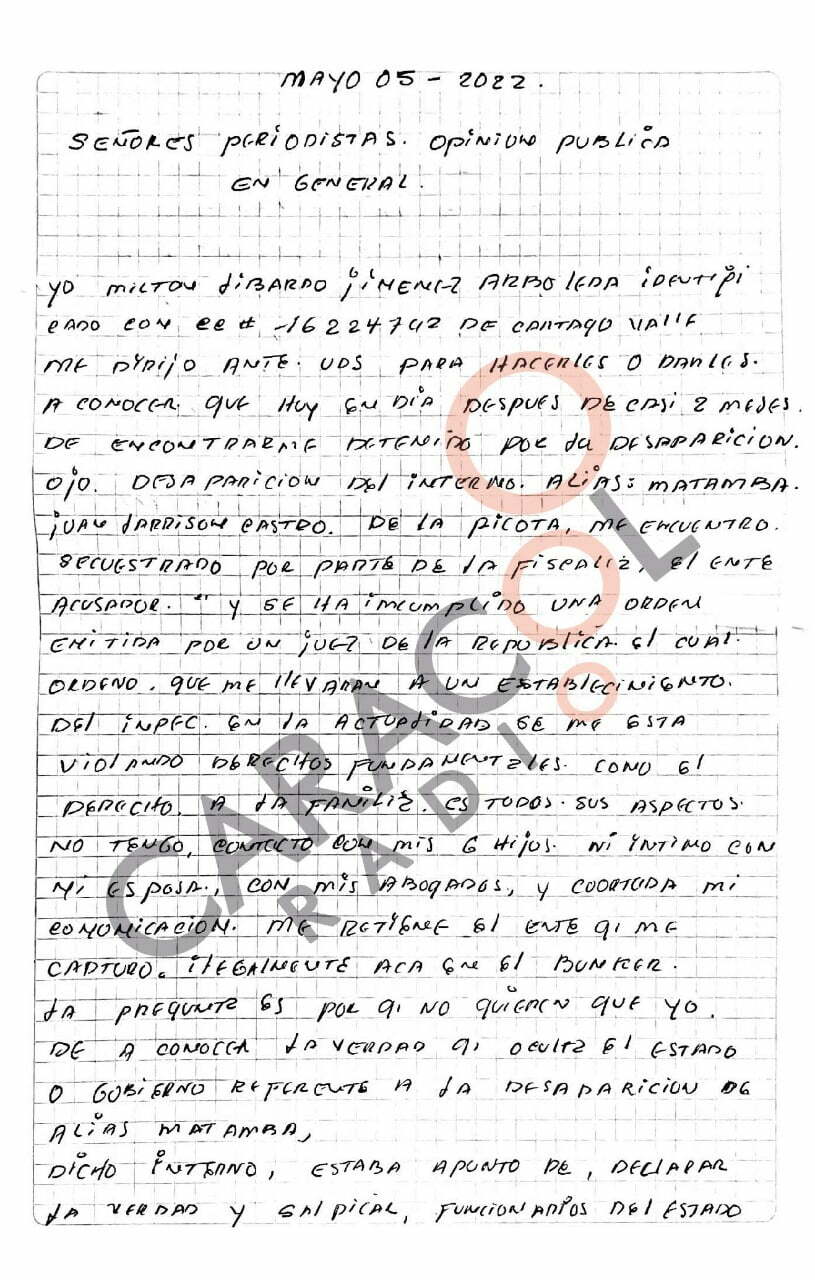 MAYO 05 - 2022.
SEÑORES PERIODISTAS. OPINION PUBLICA
EN GENERAL.
YO MILTON LIBARDO JIMENEZ ARBOLEDA IDENTIFI
CADO CON CC # -16224742 DE CARTAGO VALLE
ME DYRIJO ANTE. UDS PARA HACERLES O DARLES.
A CONOCER. QUE HUY EN DIA DESPUES DE CASI 2 MESES.
DE ENCONTRARME DETENIDO POR LA DESAPARICION.
OJO. DESAPARICION DEL INTERNO. ALIAS: MATAMBA.
JUAN LARRISON CASTRO. DE LA PICOTA, ME ENCUENTRO.
SECUESTRADO POR PARTE DE LA FISCALIA, EL ENTE
ACUSADOR. " Y SE HA IMCUMPLIDO UNA ORDEN
EMITIDA POR UN JUEZ DE LA REPUBLICA. EL CUAL.
ORDENO. QUE ME LLEVARAN A UN ESTABLECIMIENTO.
DEL INPEC. EN LA ACTUALIDAD SE ME ESTA
VIOLANDO DERECHOS FUNDAMENTALES. COMO EL
DERECHO. A LA FAMILIA. ES TODOS. SUS ASPECTOS.
NO TENGO, CONTACTO CON MIS 6 HIJOS. NI INTIMO CON
MI ESPOSA., CON MIS ABOGADOS, Y COORTADA MI
COMONICACION. ME RETIENE EL ENTE QI ME
CAPTURO. ILEGALMENTE ACA EN EL BUNKER.
LA PREGUNTA ES POR QI NO QUIEREN QUE YO.
DE A CONOCER LA VERDAD QI OCULTA EL ESTADO
O GOBIERNO REFERENTE A LA DESAPARICION DE
ALIAS MATAMBA,
DICHO INTERNO, ESTABA APUNTO DE, DECLARAR
LA VERDAD Y SALPICAR, FUNCIONARIOS DEL ESTADO
CARACOL
RADIO